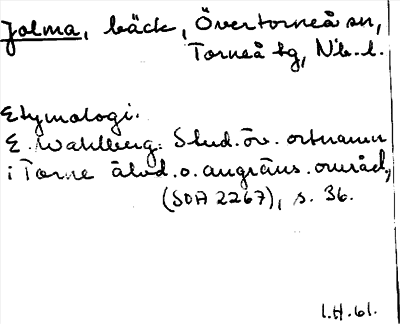 Jolma, bäck, Övertorneå sn,
Torneå tg, Nb. l.
Etymologi.
E. Wahlberg. Stud. öv. ortnamn
i Torne älvd. o. angräns. områd,
(SOA 2267), s. 36.
I.H. 61.